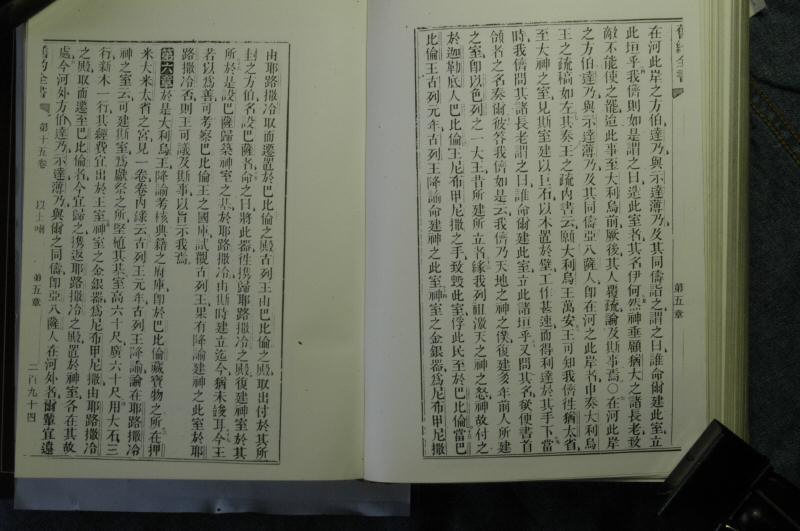 舊約全書
第五章
在河此岸之方伯達乃與示達薄乃及其同儔詣之謂之曰誰命爾建此室立
此垣乎我儕則如是謂之曰造此室者其名伊何然神垂顧猶大之諸長老致
敵不能使之罷迨此事至大利烏前厥後其人覆疏諭及斯事焉○在河此岸
之方伯達乃與示達薄乃及其同儔亞八薩人卽在河之此岸者申奏大利烏
王之疏稿如左其奏王之疏內書云願大利烏王萬安王可知我儕徃猶太省
至大神之室見斯室建以巨石以木置於壁工作甚速而得利達於其手下當
時我儕問其諸長老謂之曰誰命爾建此室立此諸垣乎又問其名欲使書首
領者之名奏爾彼答我儕如是云我儕乃天地之神之僕復建多年前人所建
之室卽以色列之一大王昔所建所立者緣我列祖激天之神之怒神故付之
於迦勒底人巴比倫王尼布甲尼撒之手致毀此室俘此民至於巴比倫當巴
比倫王古列元年古列王降諭命建神之此室神室之金銀器爲尼布甲尼撒
由耶路撒冷取而遷置於巴比倫之殿古列王由巴比倫之殿取出付於其所
封之方伯名設巴薩者命之曰將此器徃攜歸耶路撒冷之殿復建神室於其
所於是設巴薩歸築神室之基於耶路撒冷由斯時建立迄今猶未竣耳今王
若以爲善可考察巴比倫王之國庫試觀古列王果有降諭建神之此室於耶
路撒冷否則王可議及斯事以旨示我焉
第六章於是大利烏王降諭考核典籍之府庫卽於巴比倫藏寶物之所在押
米大米太省之宮見一卷卷內錄云古列王元年古列王降諭論在耶路撒冷
神之室云可建斯室爲獻祭之所堅植其基室高六十尺廣六十尺用大石三
行新木一行其經費宜出於王室神室之金銀器爲尼布甲尼撒由耶路撒冷
之殿取而遷至巴比倫者今宜歸之攜返耶路撒冷之殿置於神室各在其故
處今河外方伯達乃示達薄乃與爾之同儔卽亞八薩人在河外者爾輩宜遠
舊約全書
第十五卷
以士喇
第五章
二百九十四